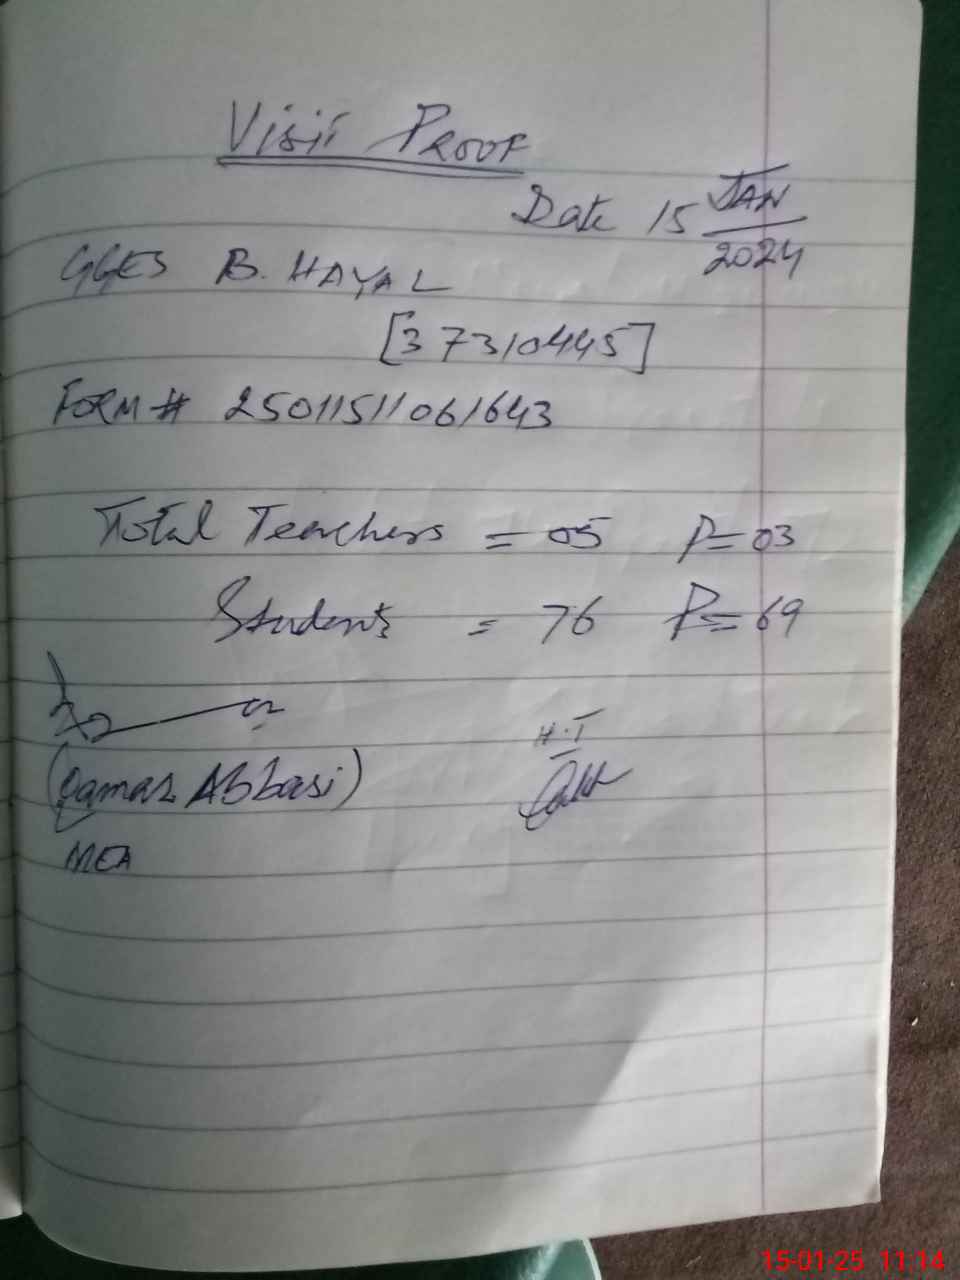 Visit Proof
Date 15 JAN
2024
GGES B. HAYAL
[37310445]
FORM # 25011511061643
Total Teachers = 05 P=03
Students = 76 P=69
H.T
(Qamar Abbasi)
MEA
15-01-25 11:14